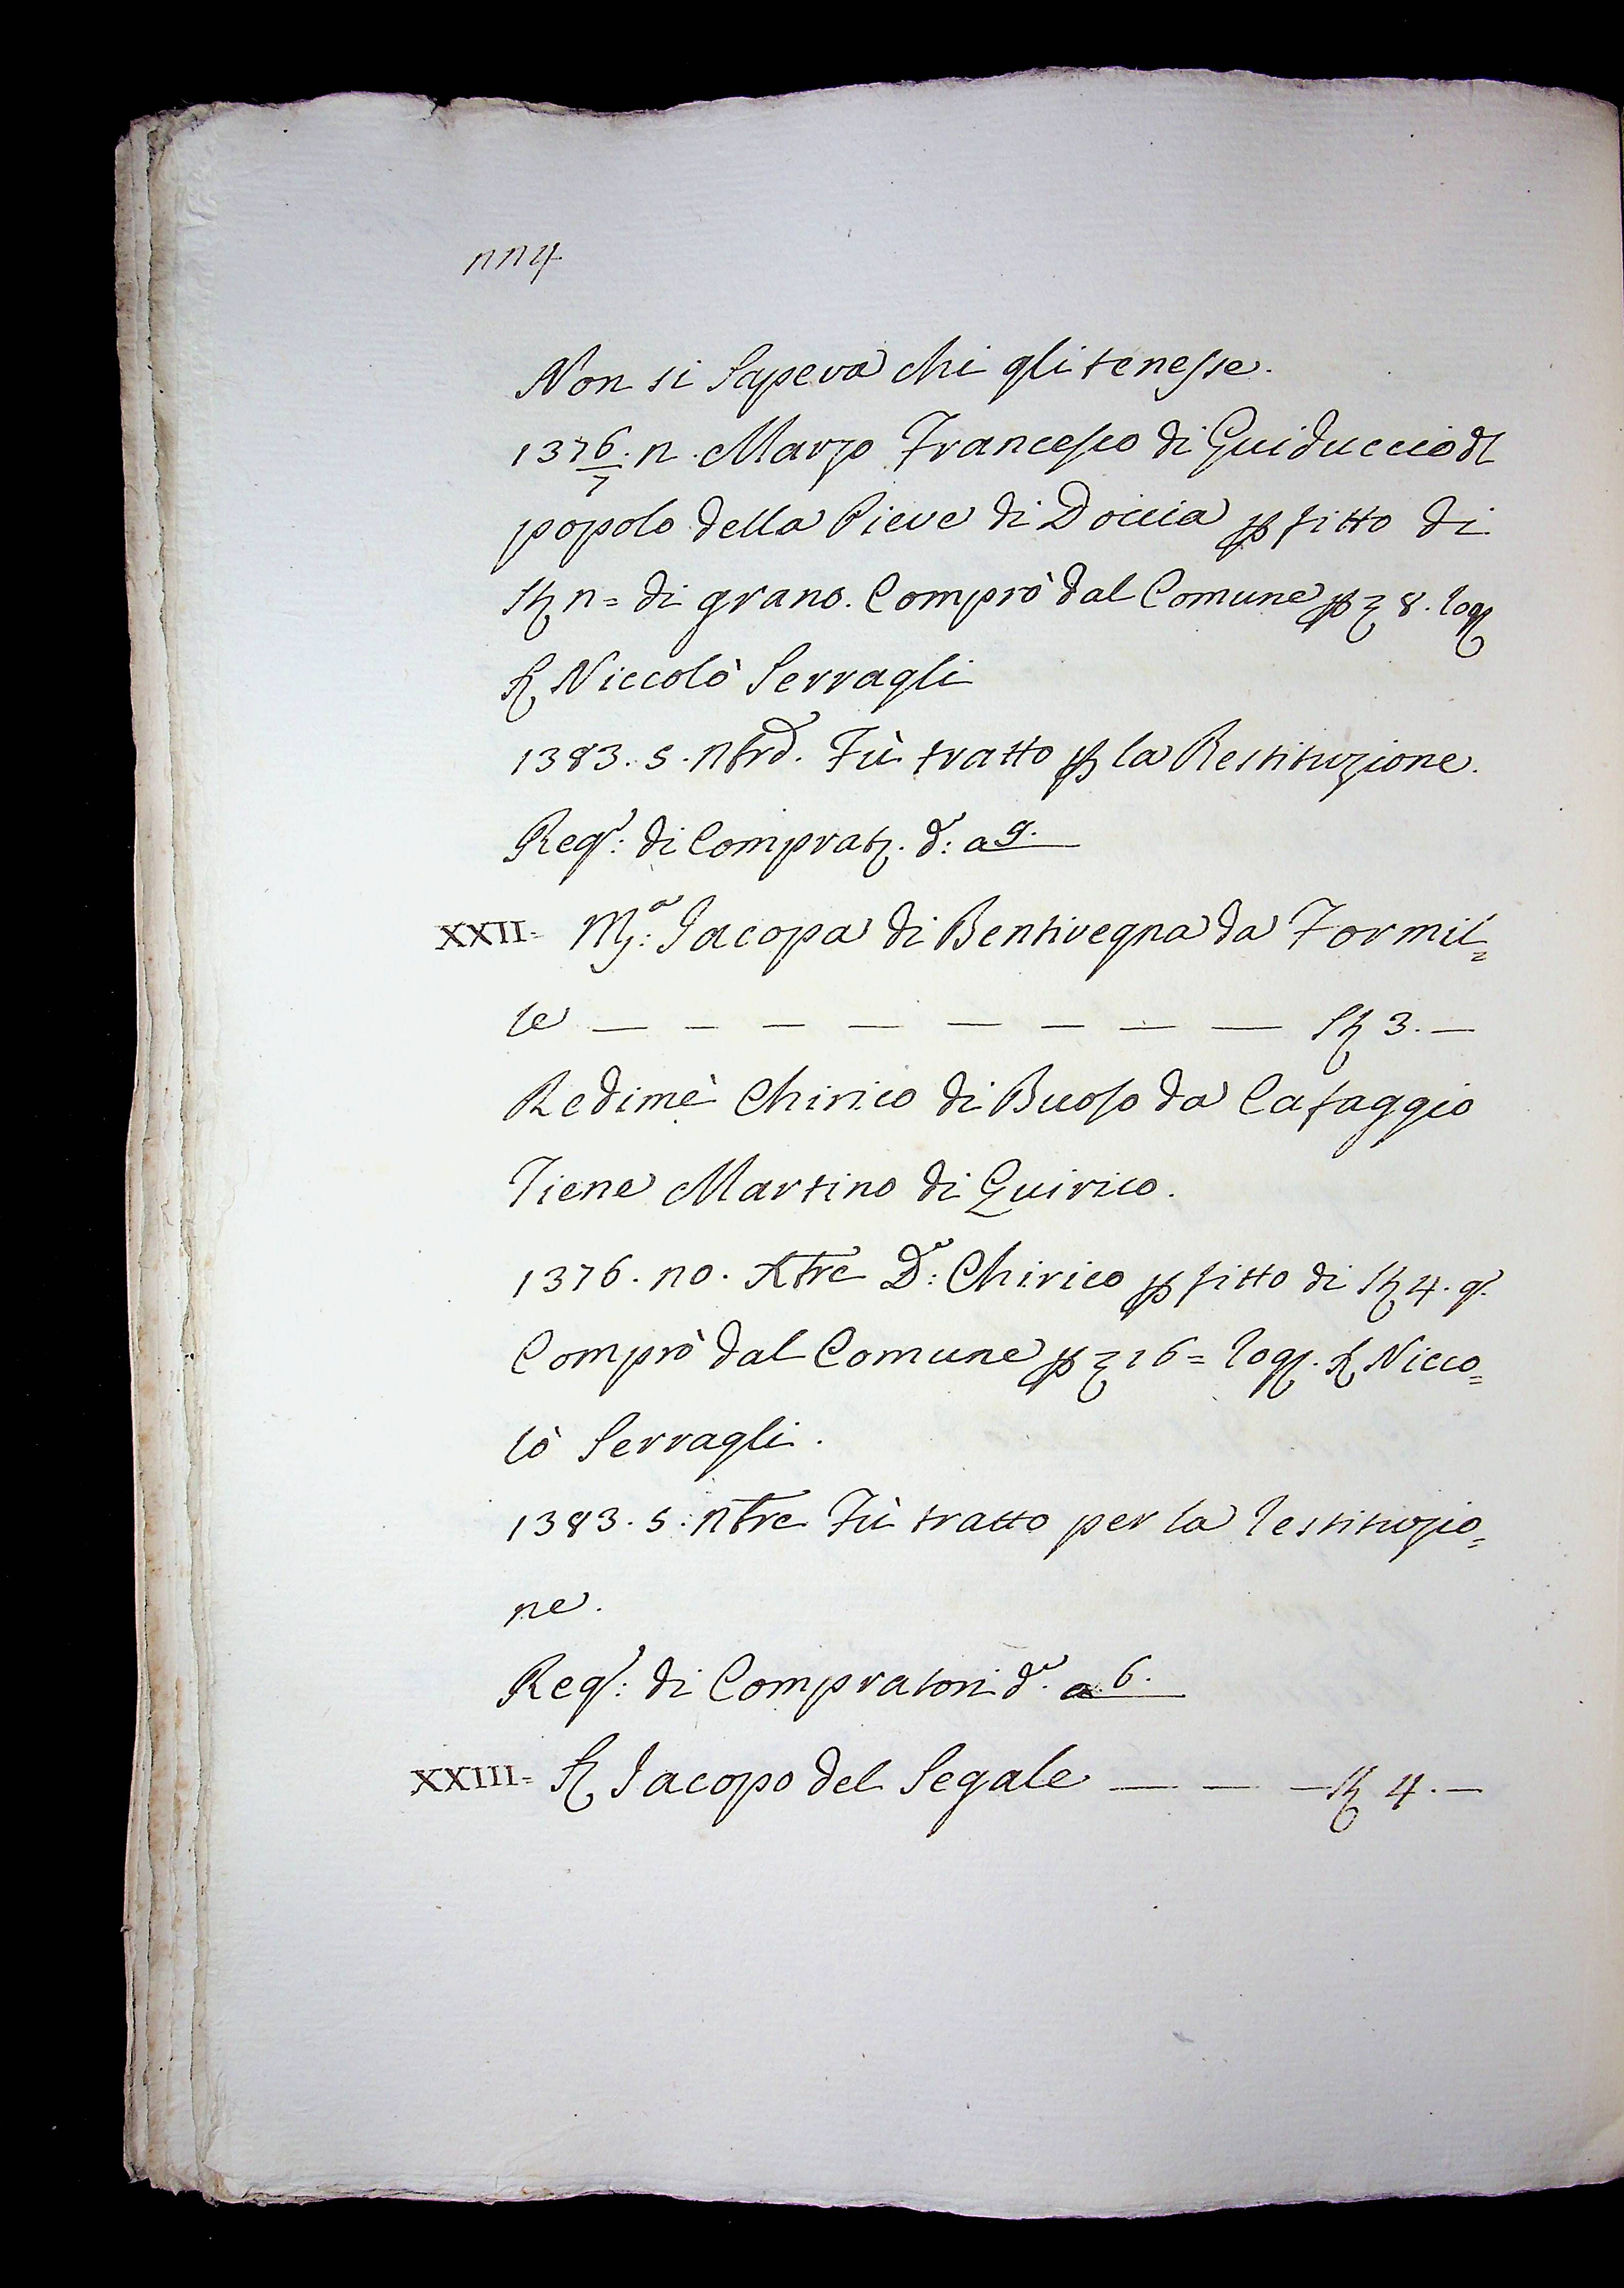 114
Non si Sapeva chi gli tenesse.
1376/7. 11. Marzo Francesco di Guiduccio dl
popolo della Pieve di Doccia p fitto di
St 11= di grano. Comprò dal Comune p 8. rog
S Niccolò Serragli
1383. 5. 9bre. Fù tratto p la Restituzione.
Reg: di Comprat. d: a 9.
XXII= Ma: Jacopa di Bentivegna da Tormil=
le — — — — — — — — St 3. —
Redimè Chirico di Buoso da Cafaggio
Tiene Martino di Quirico.
1376. 10. Xbre Do: Chirico p fitto di St 4. g.
Comprò dal Comune p 16= rog. S Nicco=
lò Serragli.
1383. 5. 9bre Fù tratto per la restituzio=
ne.
Reg: di Compratori do. a 6.
XXIII= S Jacopo del Segale — — — St 4. —